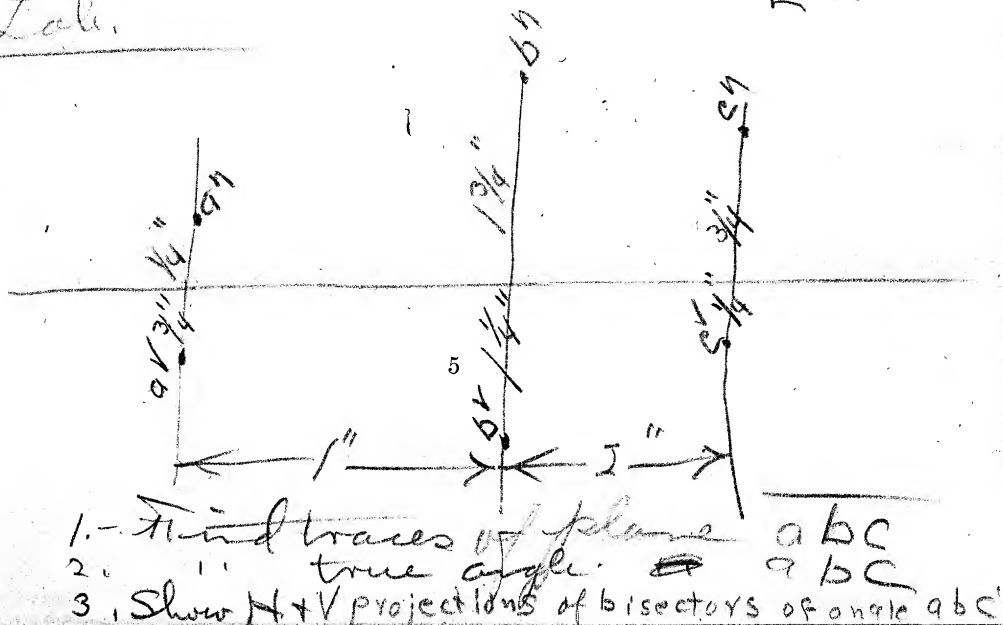 Lab.
bh
ch
1 3/4"
ah
1/4"
3/4"
3/4"
av
1/4"
cv
1 1/4"
5
bv
1"
1"
1.- Find traces of plane abc
2. " true angle. abc
3. Show H+V projections of bisectors of angle abc